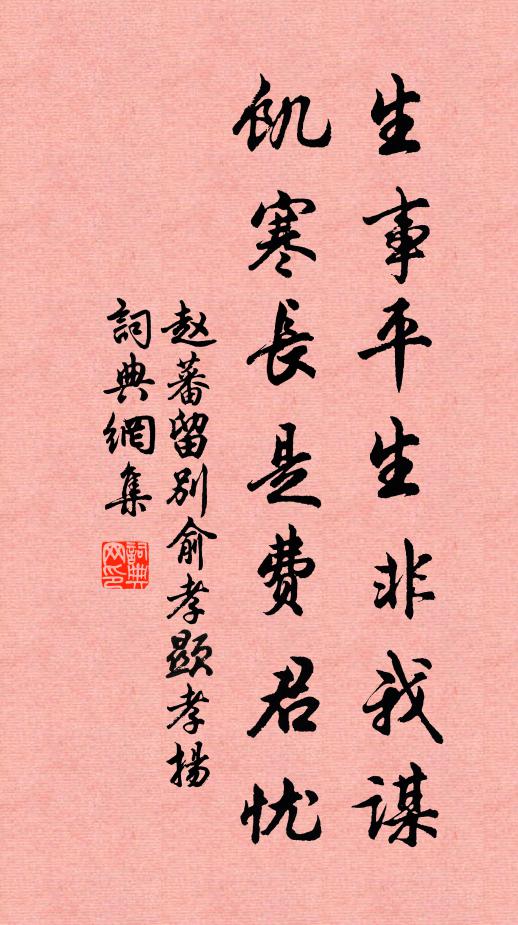 生事平生非我谋
飢寒長是费君忧
赵蕃留别俞孝顕孝揚
詞典網集
詞典网印